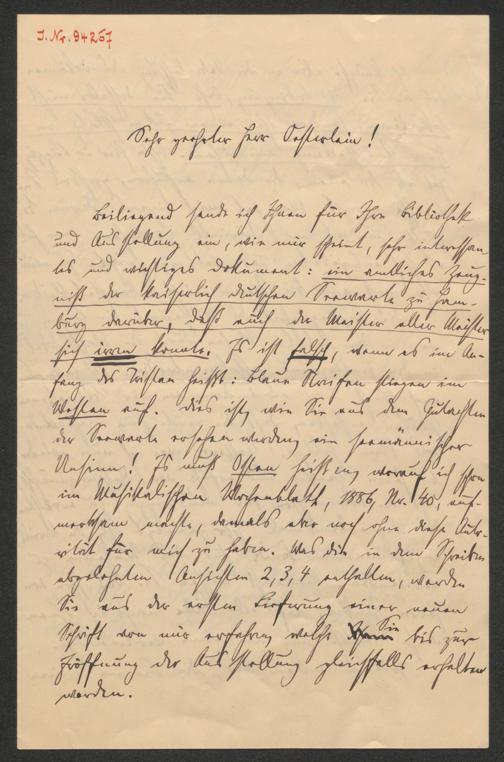 J. Nr. 94257
Sehr geehrter Herr Oesterlein!
Beiliegend sende ich Ihnen für Ihre Bibliothek
und Ausstellung ein, wie mir scheint, sehr interessan-
tes und wichtiges Dokument: ein amtliches Zeug-
niß der kaiserlich deutschen Seewarte zu Ham-
burg darüber, daß auch der Meister aller Meister
sich irren konnte. Es ist falsch, wenn es im An-
fang des Tristan heißt: Blaue Streifen stiegen im
Westen auf. Dies ist, wie Sie aus dem Gutachten
der Seewarte ersehen werden, ein seemännischer
Unsinn! Es muß Osten heißen, worauf ich schon
im Musikalischen Wochenblatt, 1886, Nr. 40, auf-
merksam machte, damals aber noch ohne diese Auto-
rität für mich zu haben. Was die in dem Schreiben
abgelehnten Ansichten 2, 3, 4 enthalten, werden
Sie aus der ersten Lieferung einer neuen
Schrift von mir erfahren, welche Sie bis zur
Eröffnung der Ausstellung gleichfalls erhalten
werden.